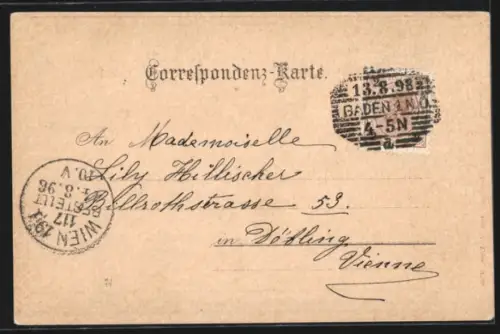 Correspondenz-Karte.
13.8.98
BADEN i. N.Ö.
4-5N
a
An Mademoiselle
Lily Hillischer
Billrothstrasse 53.
in Döbling
Vienne
WIEN 19/1
117
BESTELLT
10.V